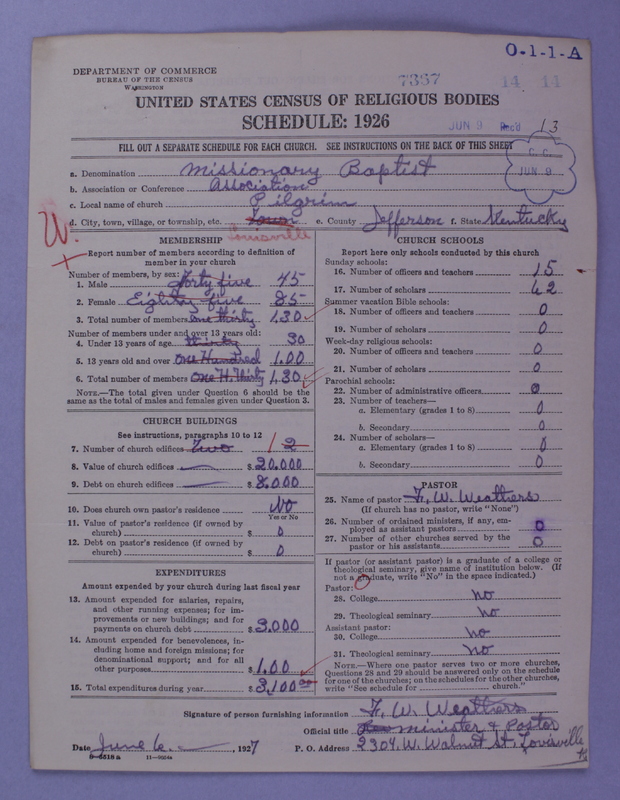 O-1-1-A
DEPARTMENT OF COMMERCE
BUREAU OF THE CENSUS
WASHINGTON
7367 14 14
UNITED STATES CENSUS OF RELIGIOUS BODIES
SCHEDULE: 1926
JUN 9 Rec'd 13
FILL OUT A SEPARATE SCHEDULE FOR EACH CHURCH. SEE INSTRUCTIONS ON THE BACK OF THIS SHEET
C. C.
JUN 9
a. Denomination Missionary Baptist
b. Association or Conference Association
c. Local name of church Pilgrim
d. City, town, village, or township, etc. Town e. County Jefferson f. State Kentucky
W. Louisville
MEMBERSHIP
Report number of members according to definition of
member in your church
Number of members, by sex:
1. Male Forty five 45
2. Female Eighty five 85
3. Total number of members one thirty 130
Number of members under and over 13 years old:
4. Under 13 years of age thirty 30
5. 13 years old and over one Hundred 1.00
6. Total number of members one H. Thirty 130
NOTE.—The total given under Question 6 should be the
same as the total of males and females given under Question 3.
CHURCH BUILDINGS
See instructions, paragraphs 10 to 12
7. Number of church edifices Two 1 2
8. Value of church edifices $20.000
9. Debt on church edifices $8.000
10. Does church own pastor's residence No
Yes or No
11. Value of pastor's residence (if owned by
church) $ 0
12. Debt on pastor's residence (if owned by
church) $ 0
EXPENDITURES
Amount expended by your church during last fiscal year
13. Amount expended for salaries, repairs,
and other running expenses; for im-
provements or new buildings; and for
payments on church debt $3.000
14. Amount expended for benevolences, in-
cluding home and foreign missions; for
denominational support; and for all
other purposes $1.00
15. Total expenditures during year $3,100 00
CHURCH SCHOOLS
Report here only schools conducted by this church
Sunday schools:
16. Number of officers and teachers 15
17. Number of scholars 62
Summer vacation Bible schools:
18. Number of officers and teachers 0
19. Number of scholars 0
Week-day religious schools:
20. Number of officers and teachers 0
21. Number of scholars 0
Parochial schools:
22. Number of administrative officers 0
23. Number of teachers—
a. Elementary (grades 1 to 8) 0
b. Secondary 0
24. Number of scholars—
a. Elementary (grades 1 to 8) 0
b. Secondary 0
PASTOR
25. Name of pastor F. W. Weathers
(If church has no pastor, write "None")
26. Number of ordained ministers, if any, em-
ployed as assistant pastors 0
27. Number of other churches served by the
pastor or his assistants 0
If pastor (or assistant pastor) is a graduate of a college or
theological seminary, give name of institution below. (If
not a graduate, write "No" in the space indicated.)
Pastor:
28. College no
29. Theological seminary No
Assistant pastor:
30. College no
31. Theological seminary no
NOTE.—Where one pastor serves two or more churches,
Questions 28 and 29 should be answered only on the schedule
for one of the churches; on the schedules for the other churches,
write "See schedule for church."
Signature of person furnishing information F. W. Weathers
Official title minister & Pastor
Date June 6. , 1927 P. O. Address 2304. W. Walnut St. Louisville
Ky
8—5518 a 11—9024a